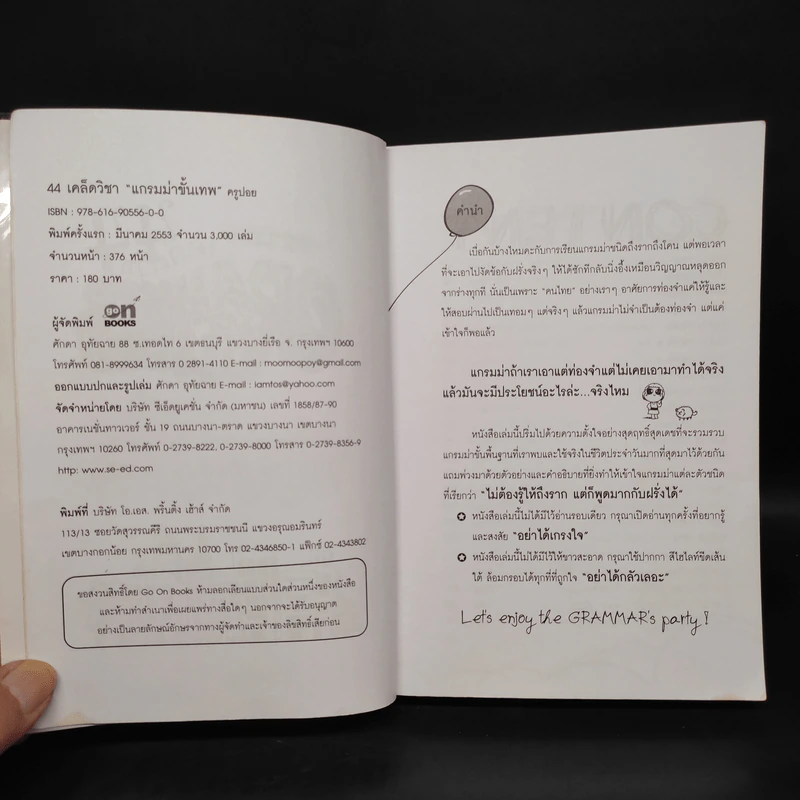 44 เคล็ดวิชา "แกรมม่าขั้นเทพ" ครูปอย
ISBN : 978-616-90556-0-0
พิมพ์ครั้งแรก : มีนาคม 2553 จำนวน 3,000 เล่ม
จำนวนหน้า : 376 หน้า
ราคา : 180 บาท
ผู้จัดพิมพ์ go on BOOKS
ศักดา อุทัยฉาย 88 ซ.เทอดไท 6 เขตธนบุรี แขวงบางยี่เรือ จ. กรุงเทพฯ 10600
โทรศัพท์ 081-8999634 โทรสาร 0 2891-4110 E-mail : moomoopoy@gmail.com
ออกแบบปกและรูปเล่ม ศักดา อุทัยฉาย E-mail : iamtos@yahoo.com
จัดจำหน่ายโดย บริษัท ซีเอ็ดยูเคชั่น จำกัด (มหาชน) เลขที่ 1858/87-90
อาคารเนชั่นทาวเวอร์ ชั้น 19 ถนนบางนา-ตราด แขวงบางนา เขตบางนา
กรุงเทพฯ 10260 โทรศัพท์ 0-2739-8222, 0-2739-8000 โทรสาร 0-2739-8356-9
http: www.se-ed.com
พิมพ์ที่ บริษัท โอ.เอส. พริ้นติ้ง เฮ้าส์ จำกัด
113/13 ซอยวัดสุวรรณคีรี ถนนพระบรมราชชนนี แขวงอรุณอมรินทร์
เขตบางกอกน้อย กรุงเทพมหานคร 10700 โทร 02-4346850-1 แฟ็กซ์ 02-4343802
ขอสงวนสิทธิ์โดย Go On Books ห้ามลอกเลียนแบบส่วนใดส่วนหนึ่งของหนังสือ
และห้ามทำสำเนาเพื่อเผยแพร่ทางสื่อใดๆ นอกจากจะได้รับอนุญาต
อย่างเป็นลายลักษณ์อักษรจากทางผู้จัดทำและเจ้าของลิขสิทธิ์เสียก่อน
คำนำ
เบื่อกันบ้างไหมคะกับการเรียนแกรมม่าชนิดถึงรากถึงโคน แต่พอเวลา
ที่จะเอาไปงัดข้อกับฝรั่งจริงๆ ให้ได้ซักทีกลับนิ่งอึ้งเหมือนวิญญาณหลุดออก
จากร่างทุกที นั่นเป็นเพราะ "คนไทย" อย่างเราๆ อาศัยการท่องจำแค่ให้รู้และ
ให้สอบผ่านไปเป็นเทอมๆ แต่จริงๆ แล้วแกรมม่าไม่จำเป็นต้องท่องจำ แต่แค่
เข้าใจก็พอแล้ว
แกรมม่าถ้าเราเอาแต่ท่องจำแต่ไม่เคยเอามาทำได้จริง
แล้วมันจะมีประโยชน์อะไรล่ะ...จริงไหม
หนังสือเล่มนี้ปริ่มไปด้วยความตั้งใจอย่างสุดฤทธิ์สุดเดชที่จะรวมรวบ
แกรมม่าขั้นพื้นฐานที่เราพบและใช้จริงในชีวิตประจำวันมากที่สุดมาไว้ด้วยกัน
แถมพ่วงมาด้วยตัวอย่างและคำอธิบายที่ยิ่งทำให้เข้าใจแกรมม่าแต่ละตัวชนิด
ที่เรียกว่า "ไม่ต้องรู้ให้ถึงราก แต่ก็พูดมากกับฝรั่งได้"
หนังสือเล่มนี้ไม่ได้มีไว้อ่านรอบเดียว กรุณาเปิดอ่านทุกครั้งที่อยากรู้
และสงสัย "อย่าได้เกรงใจ"
หนังสือเล่มนี้ไม่ได้มีไว้ให้ขาวสะอาด กรุณาใช้ปากกา สีไฮไลท์ขีดเส้น
ใต้ ล้อมกรอบได้ทุกที่ที่ถูกใจ "อย่าได้กลัวเลอะ"
Let's enjoy the GRAMMAR's party !